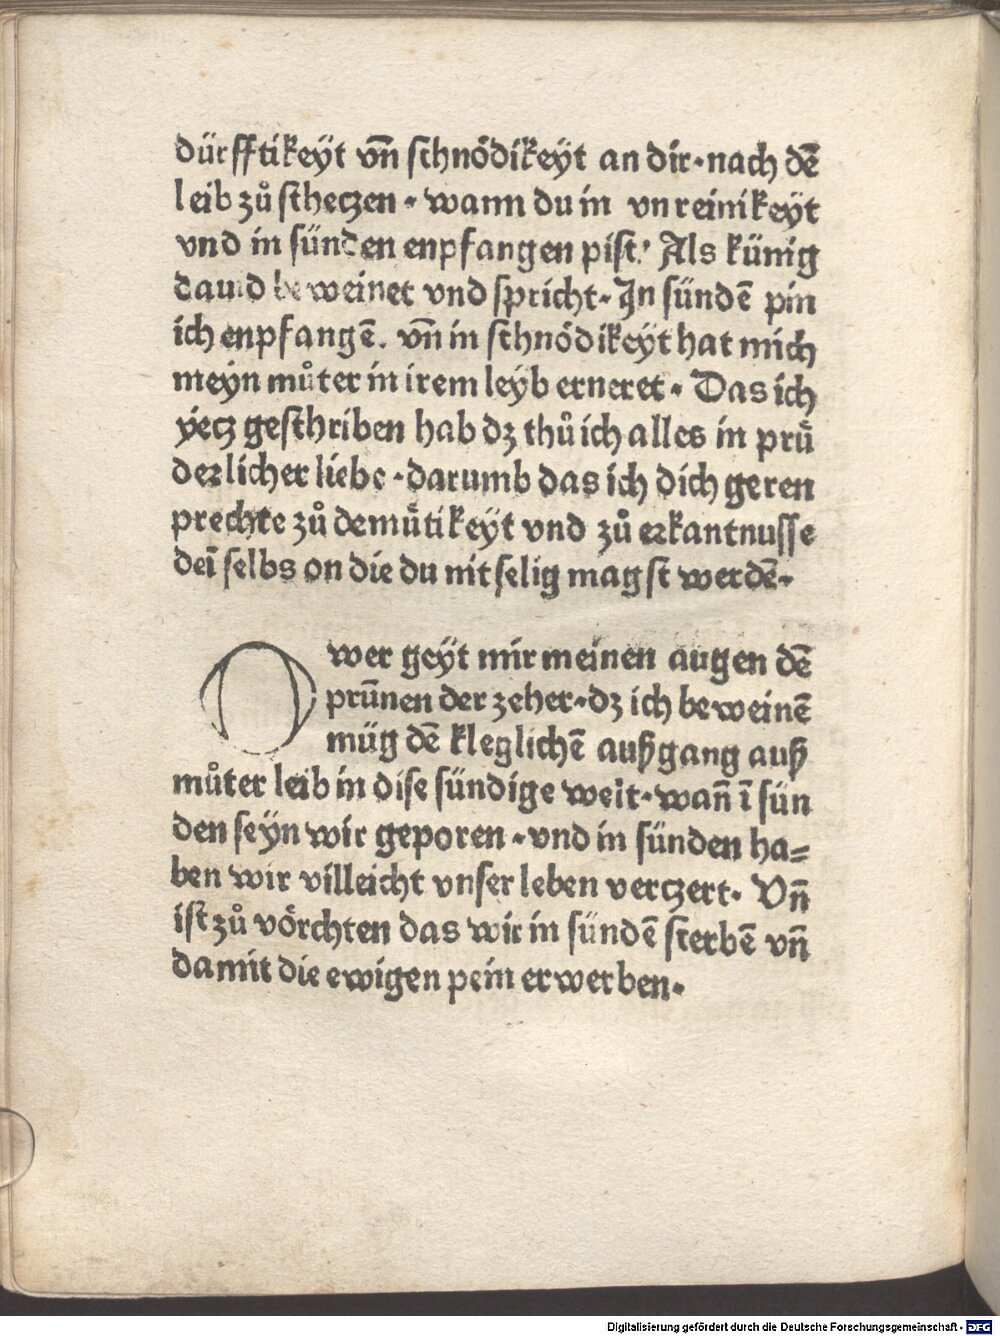 dürfftikeÿt vn̄ schnödikeÿt an dir·nach dē
leib zů schetzen · wann du in vnreinikeÿt
vnd in sünden enpfangen pist: Als künig
dauid beweinet vnd spricht· In sündē pin
ich enpfangē. vn̄ in schnödikeÿt hat mich
meyn můter in irem leÿb erneret · Das ich
ÿetz geschriben hab dz thů ich alles in prů
derlicher liebe ·darumb das ich dich geren
prechte zů demůtikeÿt vnd zů erkantnusse
deī selbs on die du nit selig magst werdē·
O wer geÿt mir meinen augen dē
prūnen der zeher·dz ich beweinē
müg dē kleglichē außgang auß
můter leib in dise sündige welt·wan̄ ī sün
den seÿn wir geporen ·vnd in sünden ha=
ben wir villeicht vnser leben verczert· Vn̄
ist zů vörchten das wir in sündē sterbē vn̄
damit die ewigen pein erwerben·
Digitalisierung gefördert durch die Deutsche Forschungsgemeinschaft - DFG